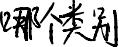 哪个类别